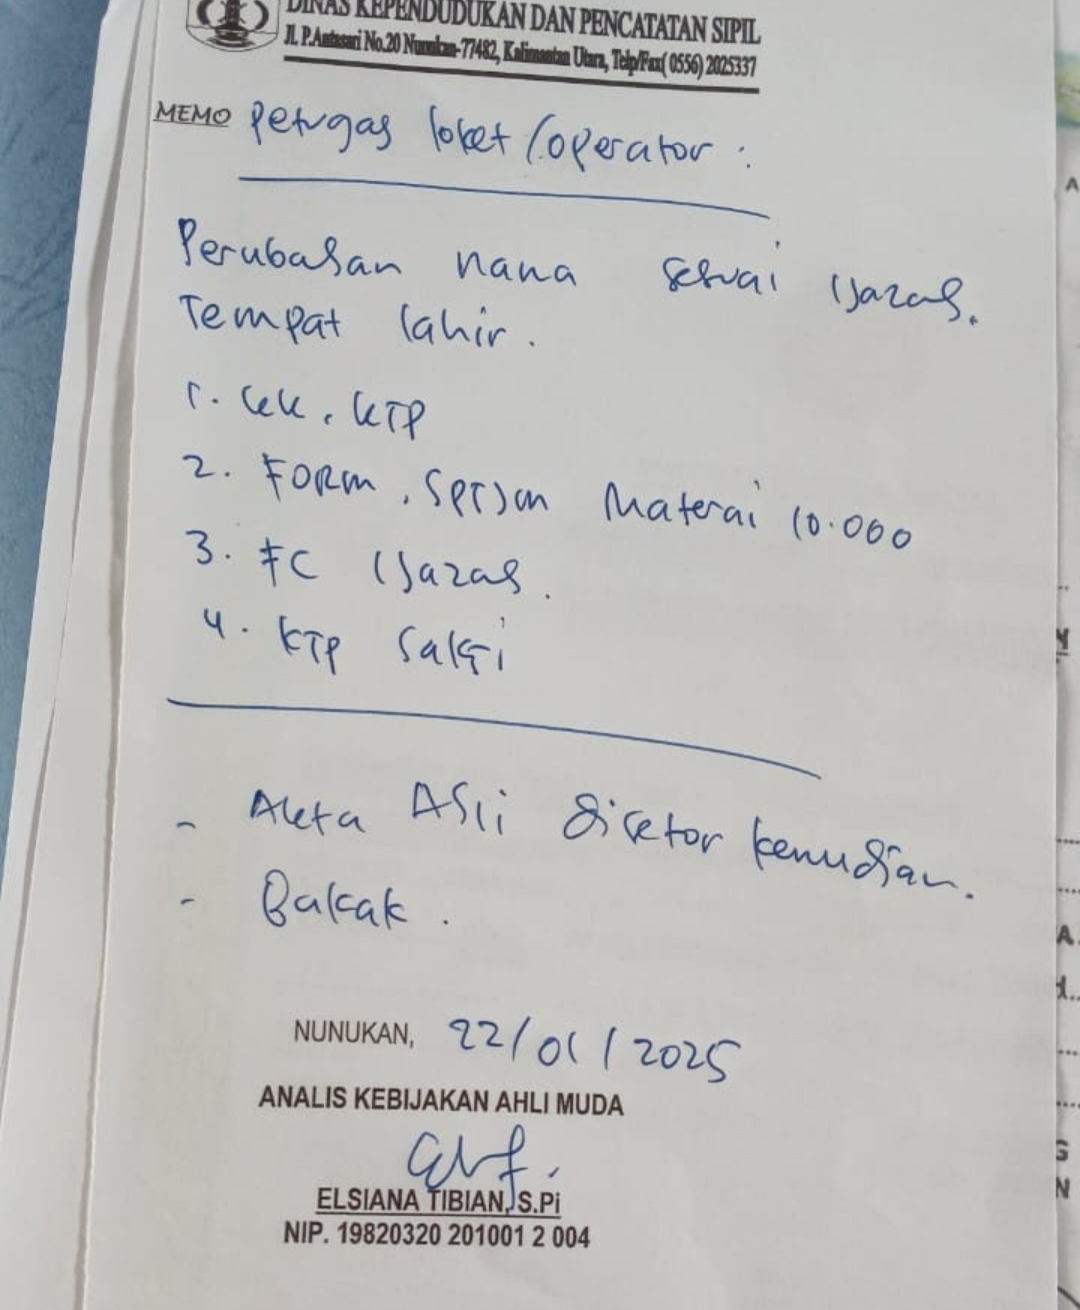 DINAS KEPENDUDUKAN DAN PENCATATAN SIPIL
Jl. P.Antasari No.20 Nunukan-77482, Kalimantan Utara, Telp/Fax( 0556) 2025337
MEMO Petugas loket /operator :
Perubahan nama sesuai Ijazah.
Tempat lahir.
1. KK, KTP
2. FORM, SPTJM Materai 10.000
3. FC Ijazah.
4. KTP Saksi
- Akta Asli disetor kemudian.
- Bakak.
NUNUKAN, 22/01/2025
ANALIS KEBIJAKAN AHLI MUDA
ELSIANA TIBIAN, S.Pi
NIP. 19820320 201001 2 004